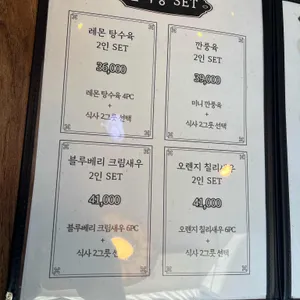 SET
레몬 탕수육
2인 SET
36,000
레몬 탕수육 4PC
+
식사 2그릇 선택
깐풍육
2인 SET
39,000
미니 깐풍육
+
식사 2그릇 선택
블루베리 크림새우
2인 SET
41,000
블루베리 크림새우 6PC
+
식사 2그릇 선택
오렌지 칠리새우
2인 SET
41,000
오렌지 칠리새우 6PC
+
식사 2그릇 선택